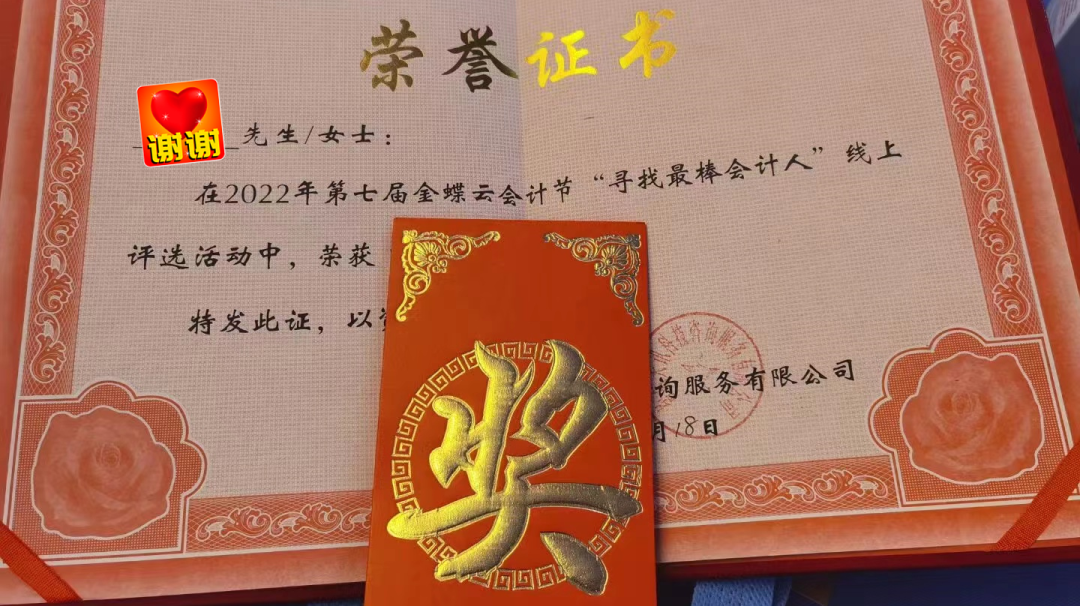 荣誉证书
谢谢
先生/女士：
在2022年第七届金蝶云会计节“寻找最棒会计人”线上
评选活动中，荣获
特发此证，以资
询服务有限公司
月18日
奖